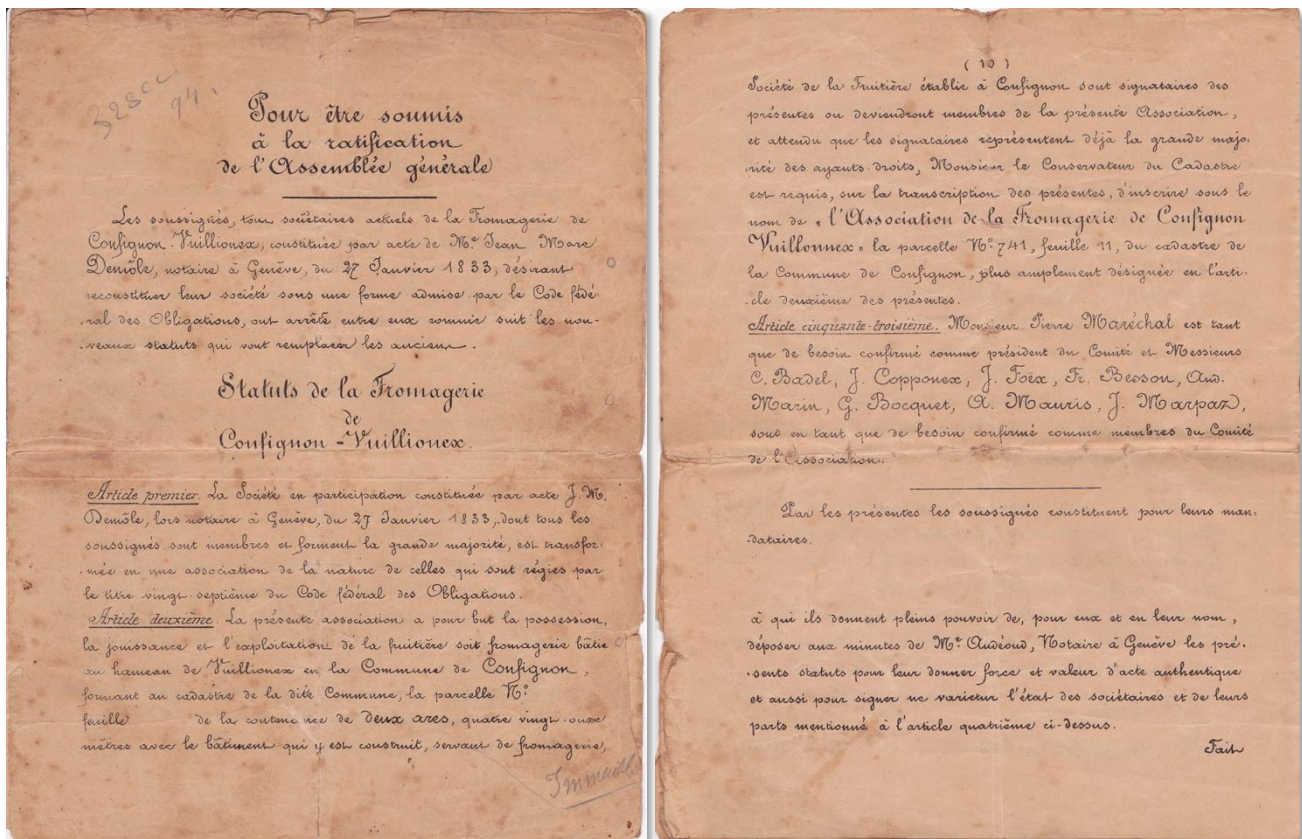 Pour être soumis
à la ratification
de l'Assemblée générale
Les soussignés, tous sociétaires actuels de la Fromagerie de
Confignon-Vuillionex, constituée par acte de Me. Jean Marc
Demôle, notaire à Genève, du 27 Janvier 1833, désirant
reconstituer leur société sous une forme admise par le Code fédé-
-ral des Obligations, ont arrêté entre eux comme suit les nou-
-veaux statuts qui vont remplacer les anciens.
Statuts de la Fromagerie
de
Confignon-Vuillionex.
Article premier. La Société en participation constituée par acte J. M.
Demôle, lors notaire à Genève, du 27 Janvier 1833, dont tous les
soussignés sont membres et forment la grande majorité, est transfor-
-mée en une association de la nature de celles qui sont régies par
le titre vingt-septième du Code fédéral des Obligations.
Article deuxième. La présente association a pour but la possession,
la jouissance et l'exploitation de la fruitière soit fromagerie bâtie
au hameau de Vuillionex en la Commune de Confignon,
formant au cadastre de la dite Commune, la parcelle No.
feuille de la contenance de deux ares, quatre vingt-onze
mètres avec le bâtiment qui y est construit, servant de fromagerie,
(10)
Société de la Fruitière établie à Confignon sont signataires des
présentes ou deviendront membres de la présente Association,
et attendu que les signataires représentent déjà la grande majo-
rité des ayants-droits, Monsieur le Conservateur du Cadastre
est requis, sur la transcription des présentes, d'inscrire sous le
nom de "l'Association de la Fromagerie de Confignon
Vuillonnex" la parcelle No. 741, feuille 11, du cadastre de
la Commune de Confignon, plus amplement désignée en l'arti-
-cle deuxième des présentes.
Article cinquante-troisième. Monsieur Pierre Maréchal est tant
que de besoin confirmé comme président du Comité et Messieurs
C. Badel, J. Copponex, J. Foëx, Fr. Besson, And.
Marin, G. Bocquet, A. Mauris, J. Marpaz,
sont en tant que de besoin confirmé comme membres du Comité
de l'Association.
Par les présentes les soussignés constituent pour leurs man-
-dataires.
à qui ils donnent pleins pouvoir de, pour eux et en leur nom,
déposer aux minutes de Me. Audéoud, Notaire à Genève les pré-
-sents statuts pour leur donner force et valeur d'acte authentique
et aussi pour signer ne varietur l'état des sociétaires et de leurs
parts mentionné à l'article quatrième ci-dessus.
Fait